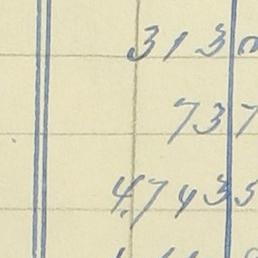 313
737
4,7435